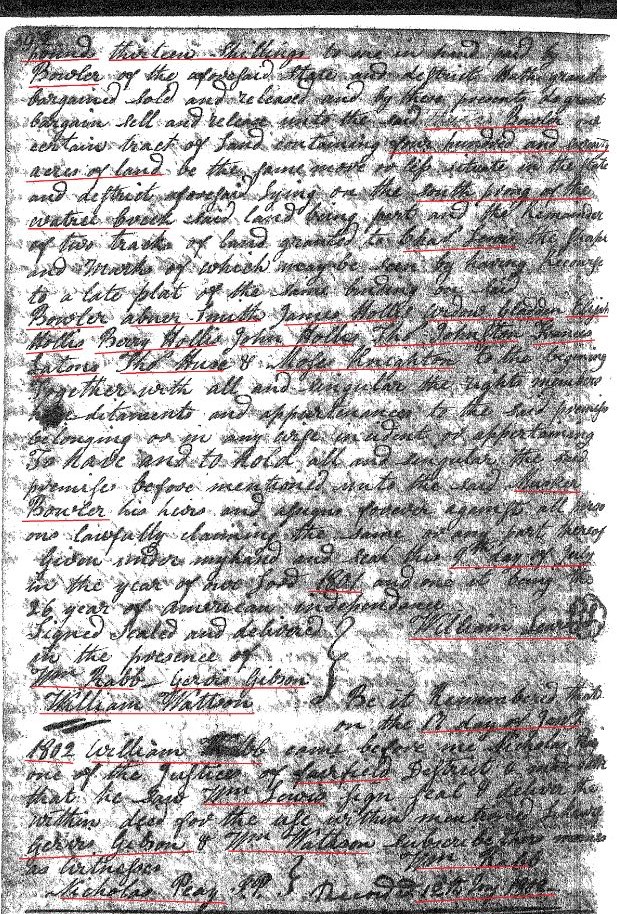 pounds thirteen Shillings to me in hand paid by
Bowler of the aforesaid State and district Hath grant
bargained sold and released and by these presents do grant
bargain sell and release unto the said Bowler one
certain tract of Land containing four hundred and
acres of land be the same more or less situate in the State
and district aforesaid lying on the south prong of the
wateree Creek said land being part and the Remander
of two tracts of land granted to the Shape
and Mark of which may be seen by having Recourse
to a late plat of the same binding on said
Bowler abner Smith James Hollis
Hollis Berry Hollis John Hollis Thos Johnston Francis
Thos Huse & Moses Knighton to the beginning
Together with all and singular the rights members
heriditaments and appertenences to the said premises
belonging or in any wise incident or appertaining
To Have and to Hold all and singular the said
premises before mentioned unto the said
Bowler his heirs and assigns forever against all pers
ons lawfully claiming the same or any part thereof
Given under my hand and seal this 9th day of July
in the year of our Lord 1801 and one it being the
26 year of american independence
Signed Sealed and delivered William
in the presence of
Wm Rabb Gervis Gibson
William Wattson Be it Remembered that
on the 17 day of July
1802 William Rabb came before me Nicholas Peay
one of the Justices of fairfield District &
that he saw Wm sign seal & deliver the
within deed for the use within mentioned
Gervis Gibson & Wm Wattson Subscribe
as Witnesses Wm Rabb
Nicholas Peay J.P.